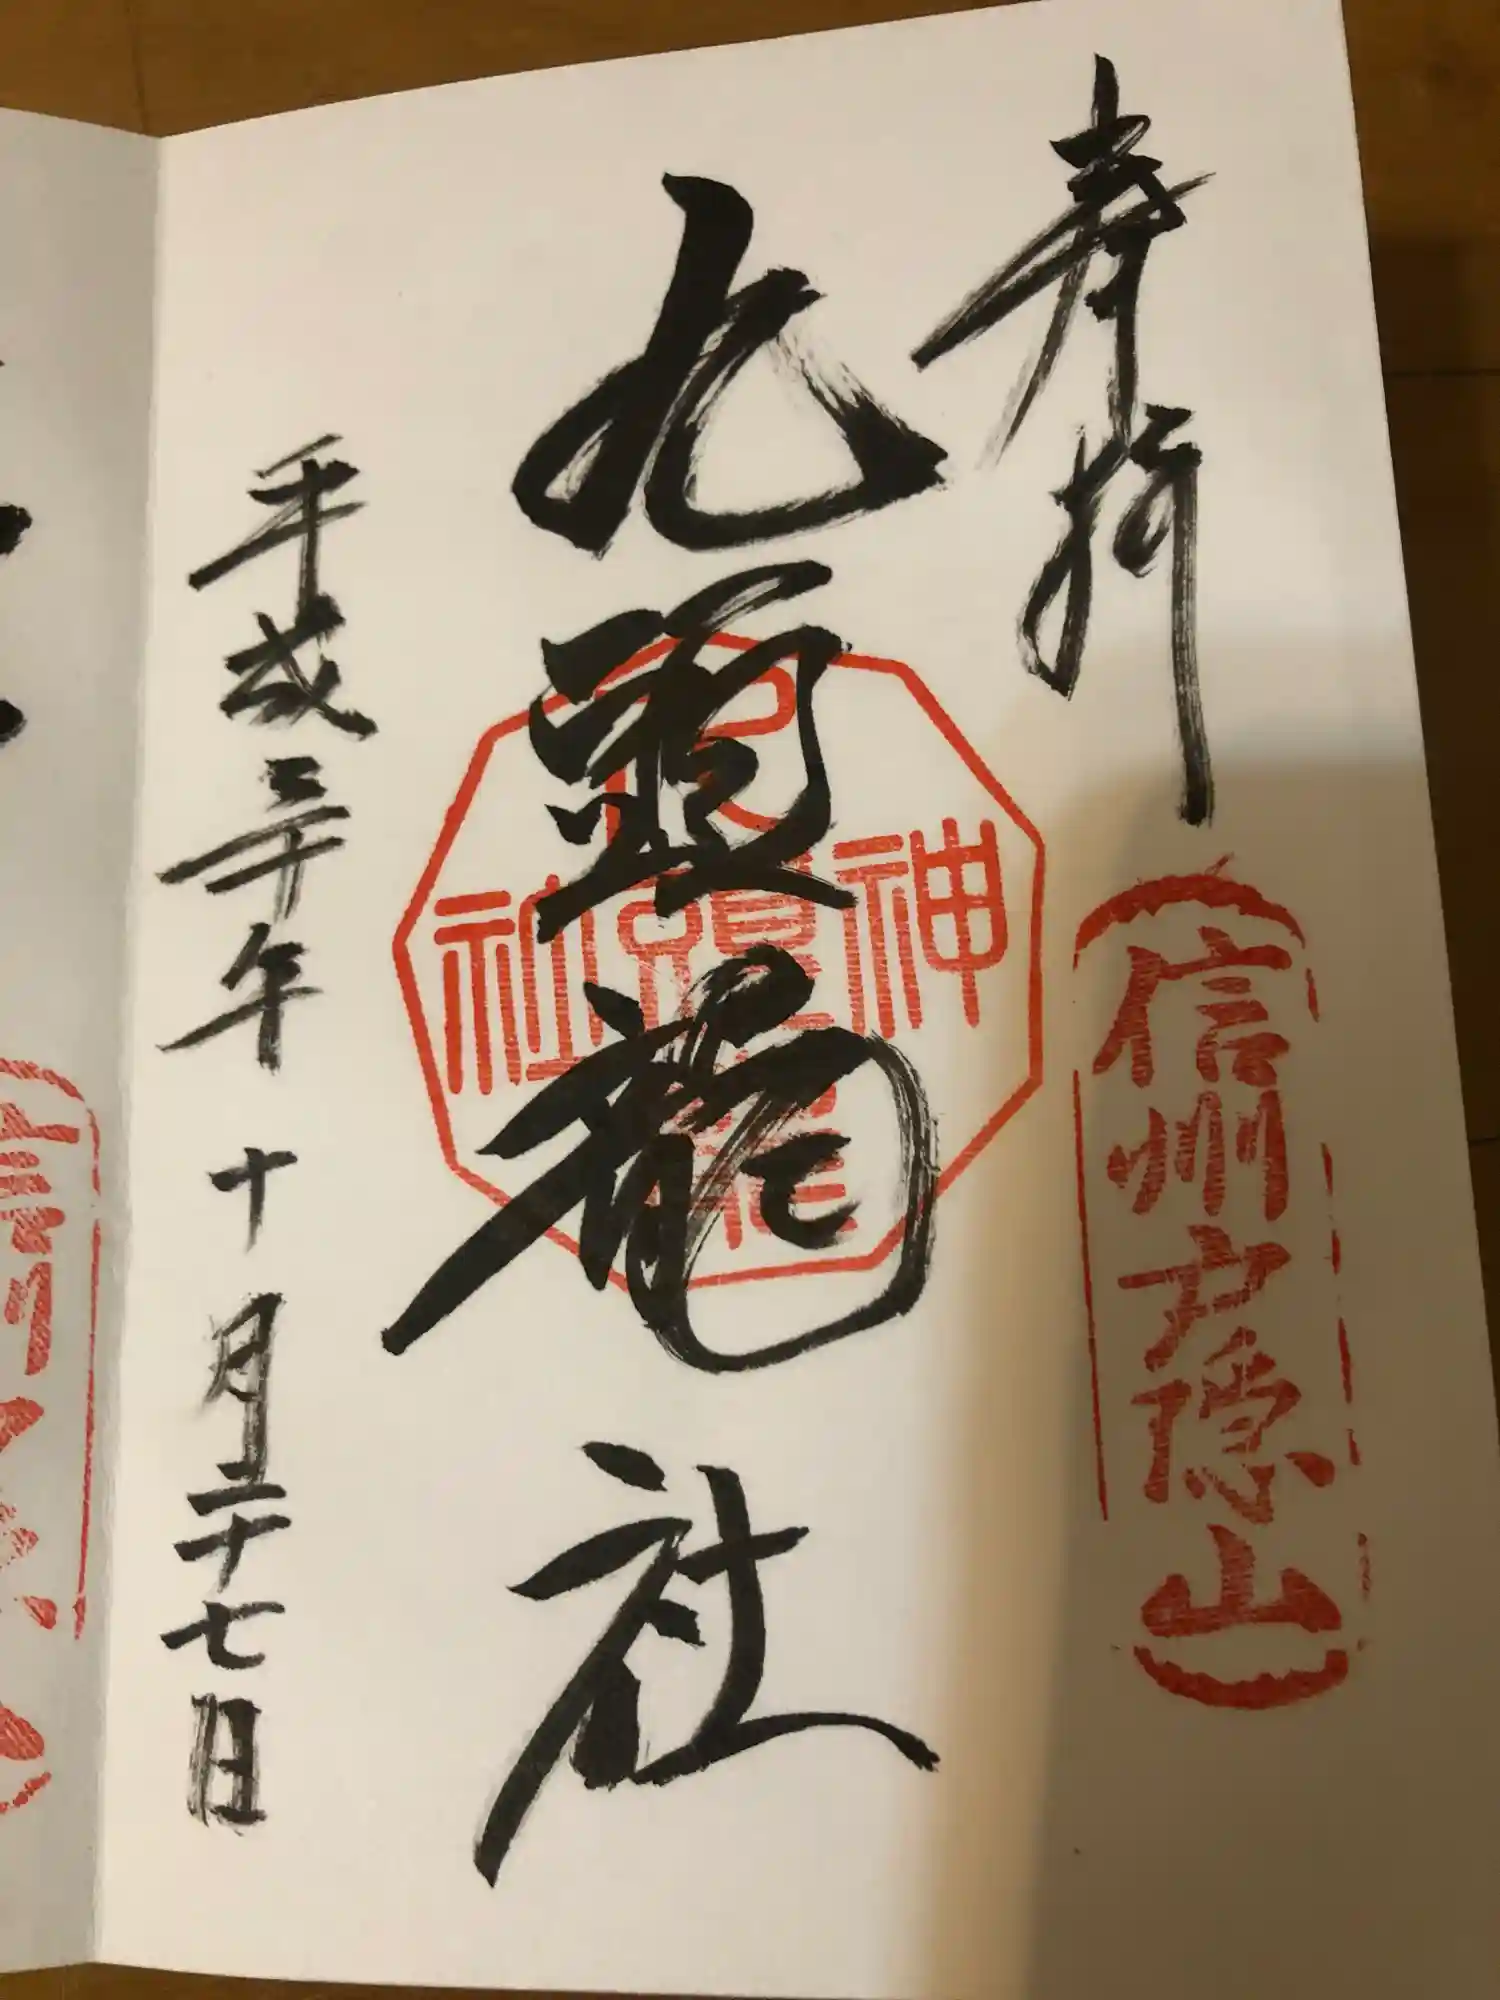 奉拝
信州戸隠山
九頭龍社
九頭龍
神社
平成三十年 十月二十七日